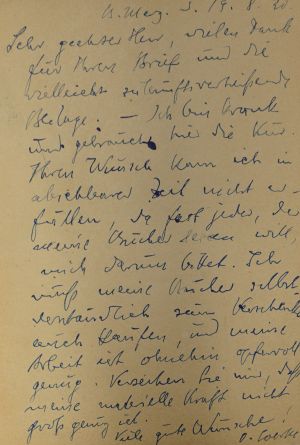 Sehr geehrter Herr, vielen Dank
für Ihren Brief und die
vielleicht zukunftsverheißende
Beilage. – Ich bin krank
und gebrauche hier die Kur.
Ihren Wunsch kann ich in
absehbarer Zeit nicht er-
füllen, da fast jeder, der
meine Bücher lesen will,
mich darum bittet. Ich
muß meine Bücher selbst-
verständlich zum Verschenken
auch kaufen, und meine
Arbeit ist ohnehin opfervoll
genug. Verzeihen Sie mir, daß
meine materielle Kraft nicht
groß genug ist.
Viele gute Wünsche!